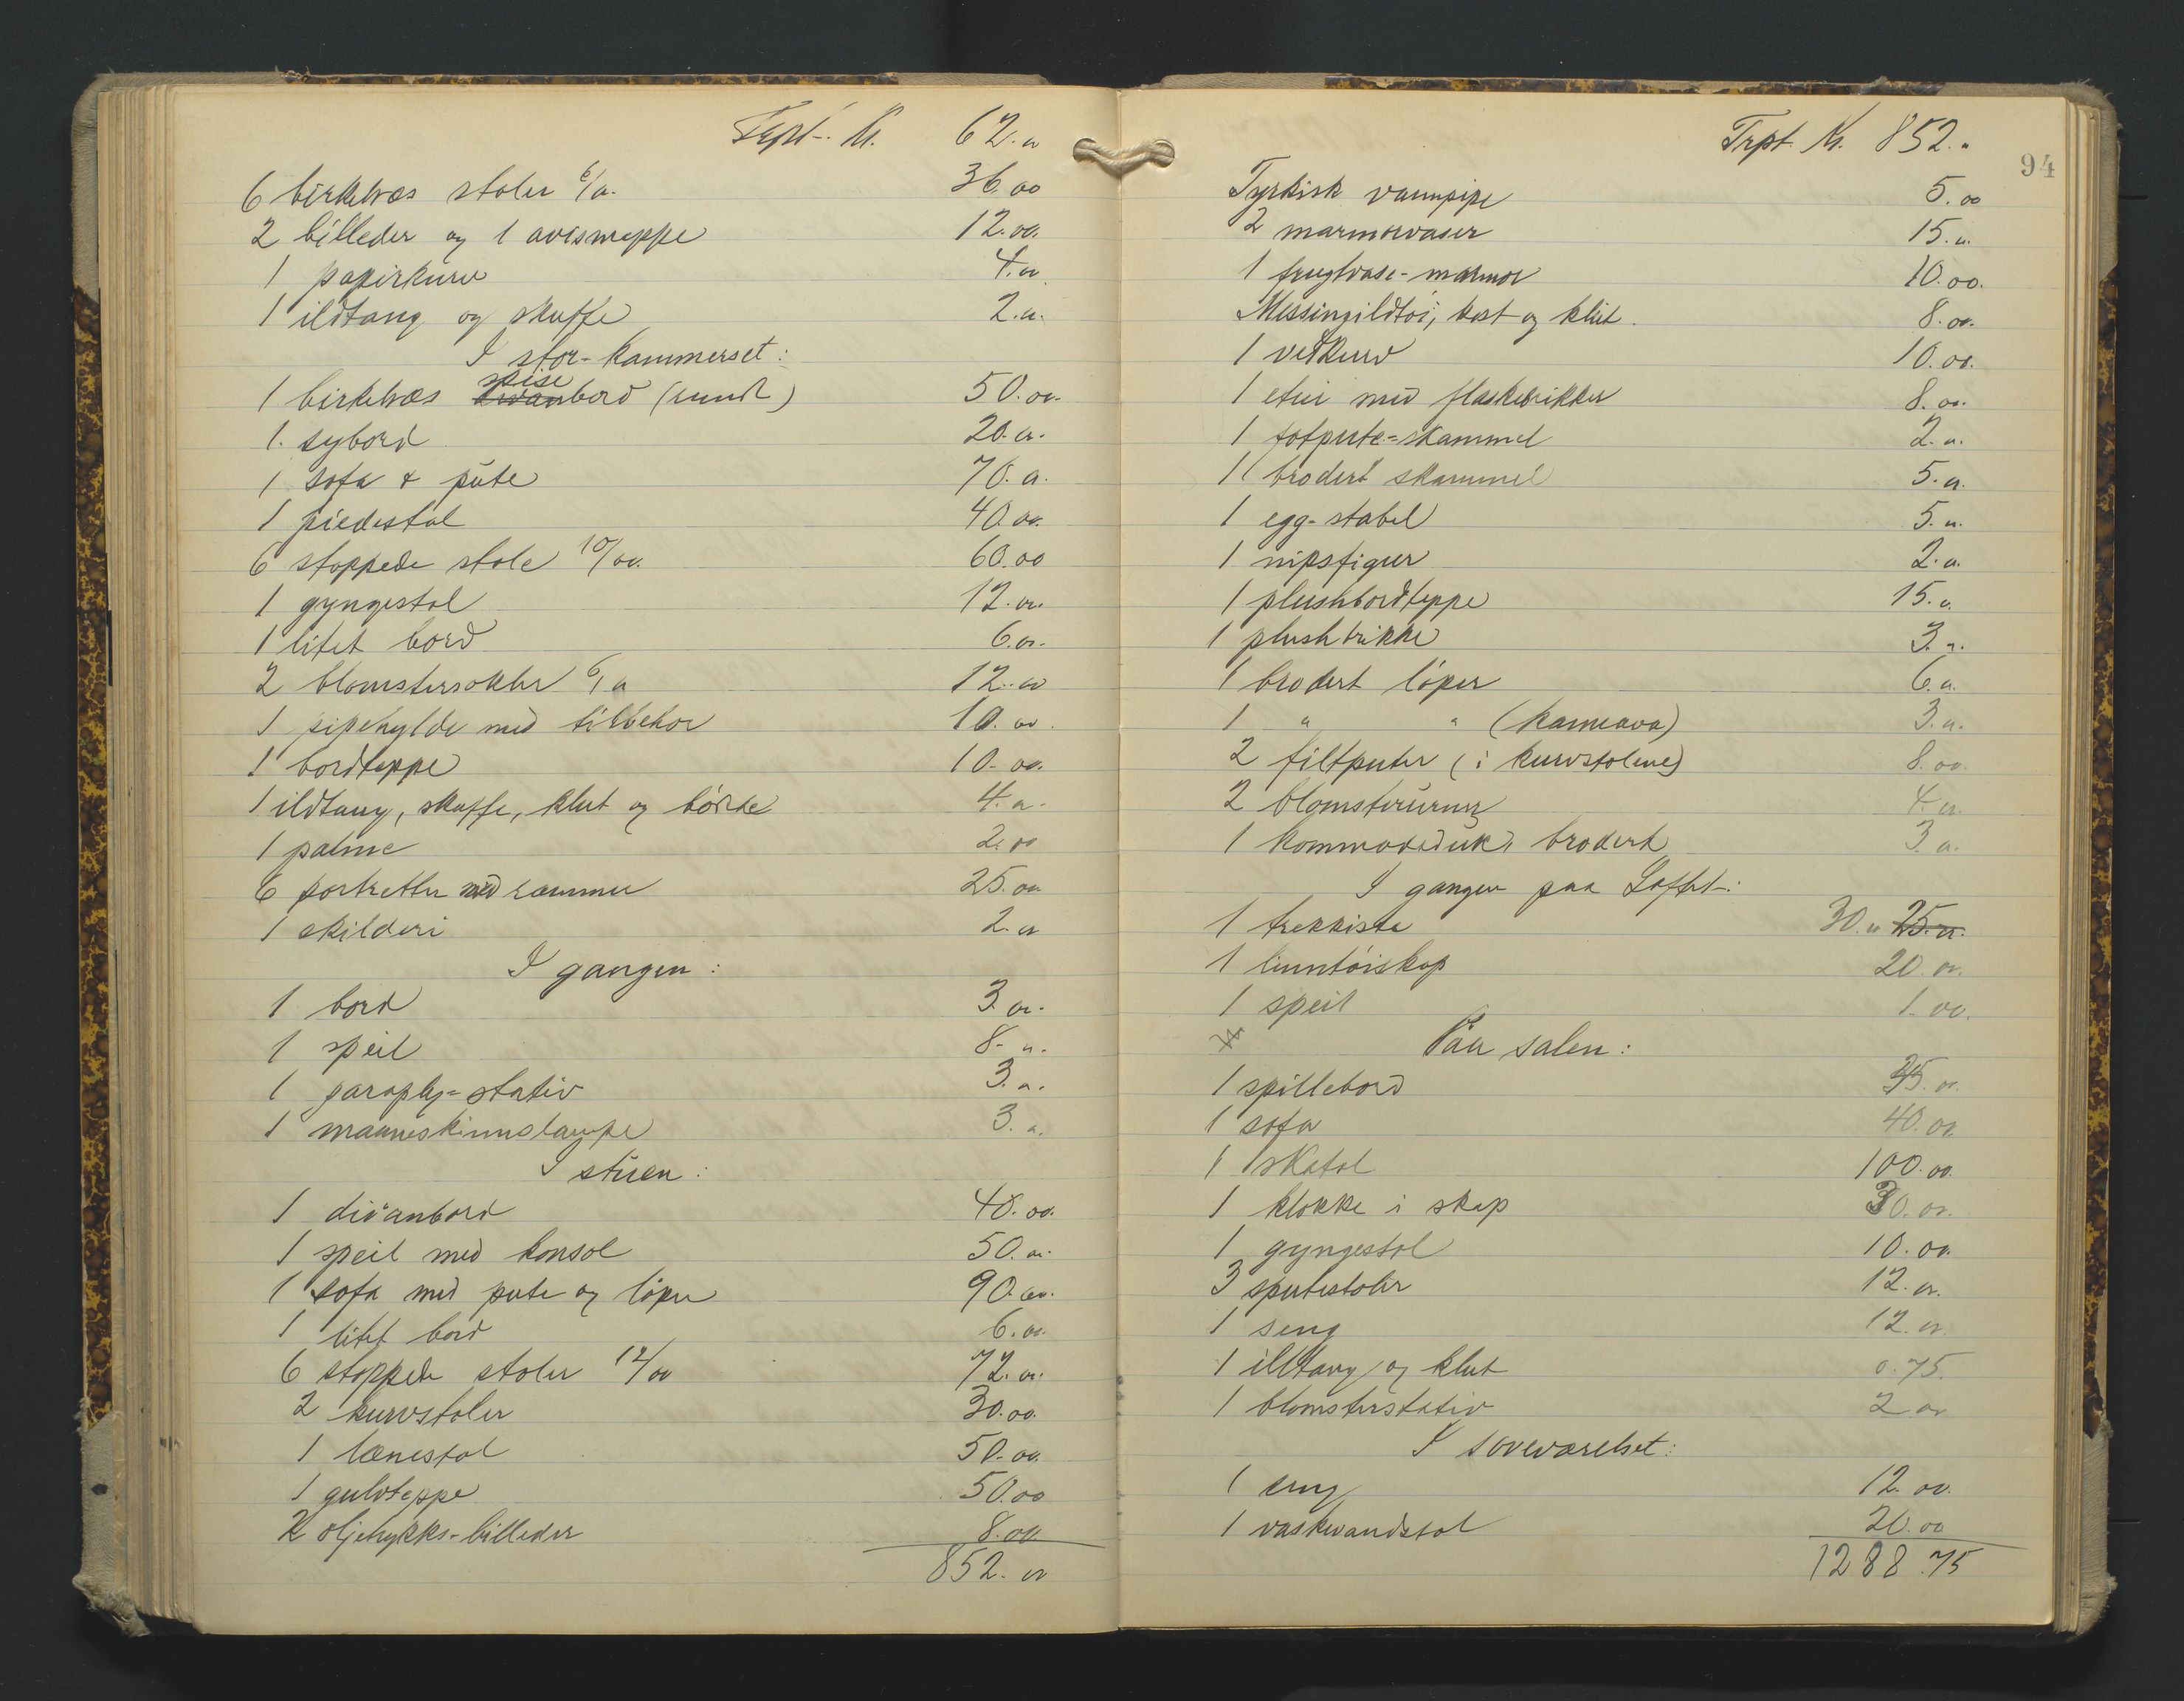 Trpt. Kr. 62.00
6 birketræs stoler 6/00. 36.00
2 billeder og 1 avismappe 12.00.
1 papirkurv 4.00
1 ildtang og skuffe 2.00.
I stor-kammerset:
1 birketræs spisebord (rundt) 50.00.
1. sybord 20.00.
1 sofa & pute 70.00.
1 piedestal 40.00.
6 stoppede stole 10/00. 60.00
1 gyngestol 12.00.
1 litet bord 6.00.
2 blomstersokler 6/00 12.00
1 pipehylde med tilbehør 10.00.
1 bordteppe 10.00.
1 ildtang, skuffe, klut og börste 4.00.
1 palme 2.00
6 portretter med rammer 25.00
1 skilderi 2.00
I gangen:
1 bord 3.00.
1 speil 8.00.
1 paraply-stativ 3.00.
1 maaneskinnslampe 3.00.
I stuen:
1 divanbord 48.00.
1 speil med konsol 50.00.
1 sofa med pute og löper 90.00.
1 litet bord 6.00.
6 stoppede stoler 12/00 72.00.
2 kurvstoler 30.00.
1 lænestol 50.00.
1 gulvteppe 50.00
2 oljetrykks-billeder 8.00.
852.00
94
Trpt. Kr. 852.00
Tyrkisk vannpipe 5.00
2 marmorvaser 15.00.
1 frugtvase-marmor 10.00.
Messingildtöi, kost og klut. 8.00.
1 vedkurv 10.00.
1 etui med flaskebrikker 8.00.
1 fotpute-skammel 2.00.
1 brodert skammel 5.00.
1 egg-stabel 5.00.
1 nipsfigur 2.00.
1 plushbordteppe 15.00.
1 plushbrikke 3.00.
1 brodert löper 6.00.
1 " " (kameava) 3.00.
2 filtputer (i kurvstolene) 8.00.
2 blomsterurner 4.00.
1 kommodeduk, brodert 3.00.
I gangen paa Loftet:
1 trekkiste 30.00 25.00.
1 linntöiskap 20.00.
1 speil 1.00.
Paa salen:
1 spillebord 35.00.
1 sofa 40.00.
1 skatol 100.00.
1 klokke i skap 30.00.
1 gyngestol 10.00.
3 sputestoler 12.00.
1 seng 12.00.
1 ildtang og klut 0.75.
1 blomsterstativ 2.00
I soveværelset:
1 seng 12.00.
1 vaskevandstol 20.00
1288.75